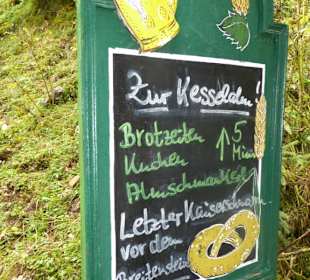 Zur Kesselalm!
Brotzeiten
Kuchen ↑ 5 Min
Almschmankerl
Letzter Kaiserschmarrn
vor dem
Breitenstein